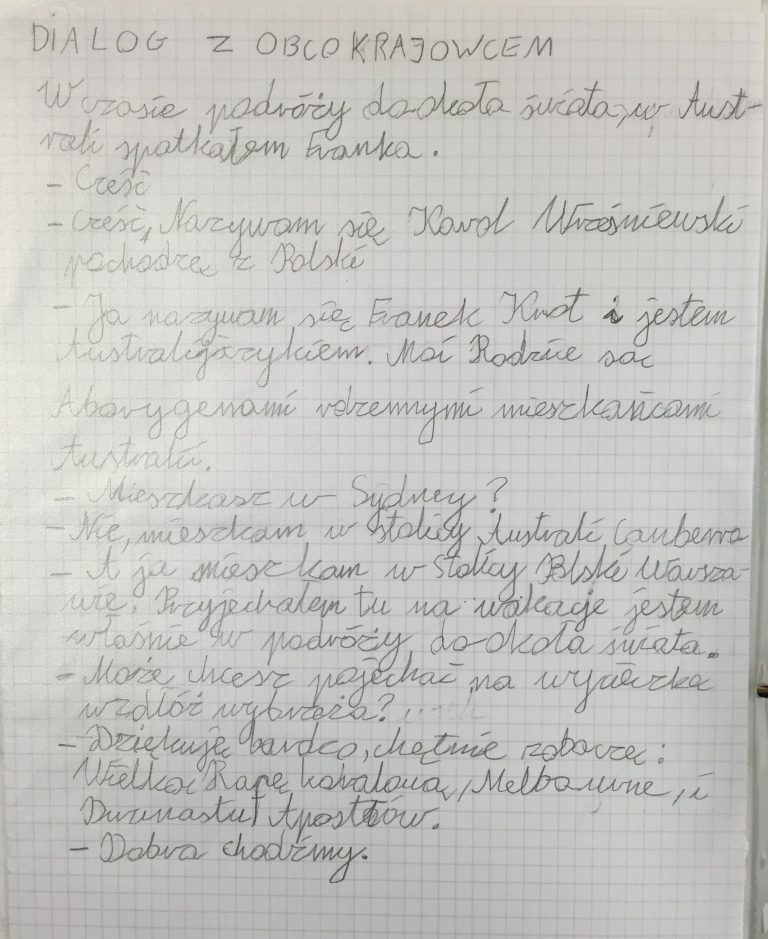 DIALOG Z OBCOKRAJOWCEM
W czasie podróży do okoła świata, w Aust-
rali spotkałem Franka.
- Cześć
- Cześć, Nazywam się Karol Wreśniewski
pochodzę z Polski
- Ja nazywam się Franek Knot i jestem
Australijarzykiem. Moi Rodzice sac
Aborygenami rdzennymi mieszkańcami
Australii.
- Mieszkasz w Sydney?
- Nie, mieszkam w stolicy Australi Canberra
- A ja mieszkam w Stolicy Polski Warsza-
wie. Przyjechałem tu na wakacje jestem
właśnie w podróży do okoła świata.
- Może chcesz pojechać na wycieczka
wzdłóż wybrzeża?
- Dziękuję bardzo, chętnie zobaczę:
Wielką Rafę koralową, Melbourne, i
Dwunastu Apostołów.
- Dobra chodźmy.